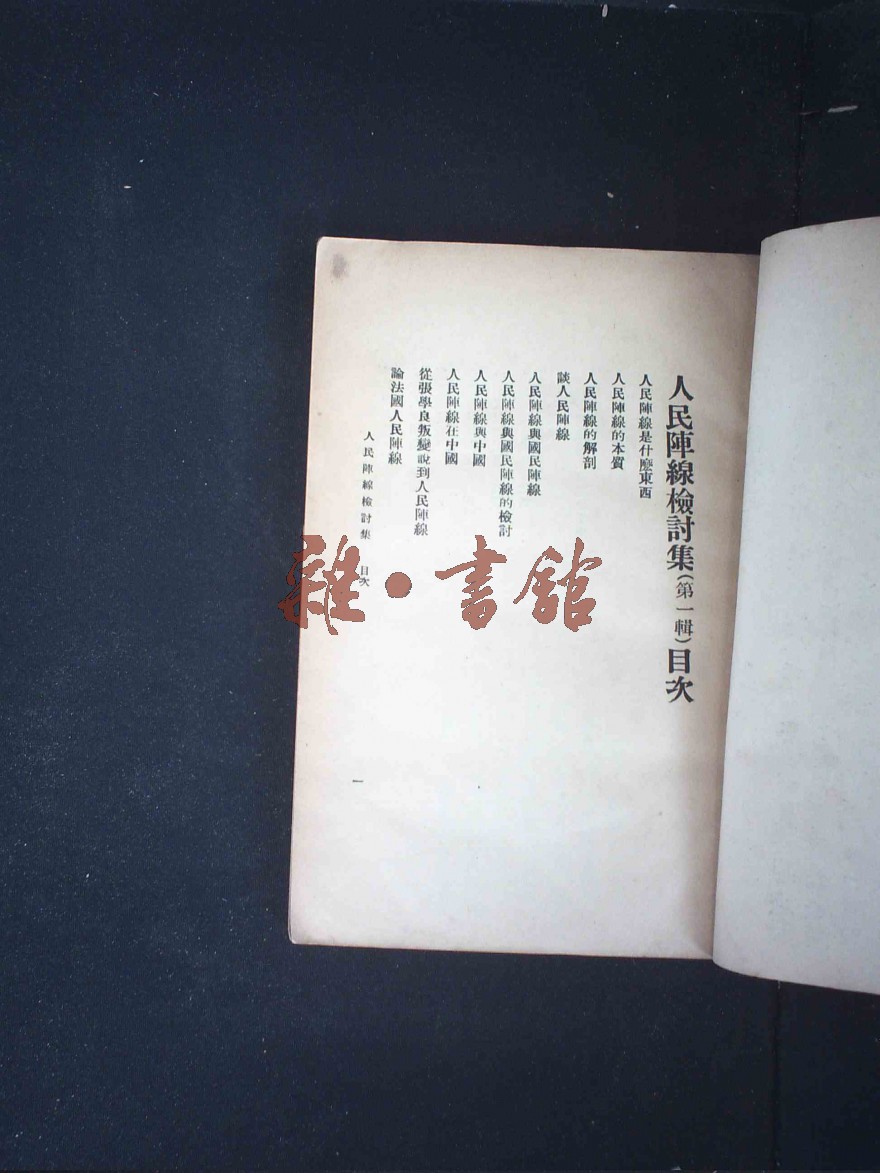 人民陣線檢討集（第一輯）目次
人民陣線是什麼東西
人民陣線的本質
人民陣線的解剖
談人民陣線
人民陣線與國民陣線
人民陣線與國民陣線的檢討
人民陣線與中國
人民陣線在中國
從張學良叛變說到人民陣線
論法國人民陣線
人民陣線檢討集 目次
一
雜·書館